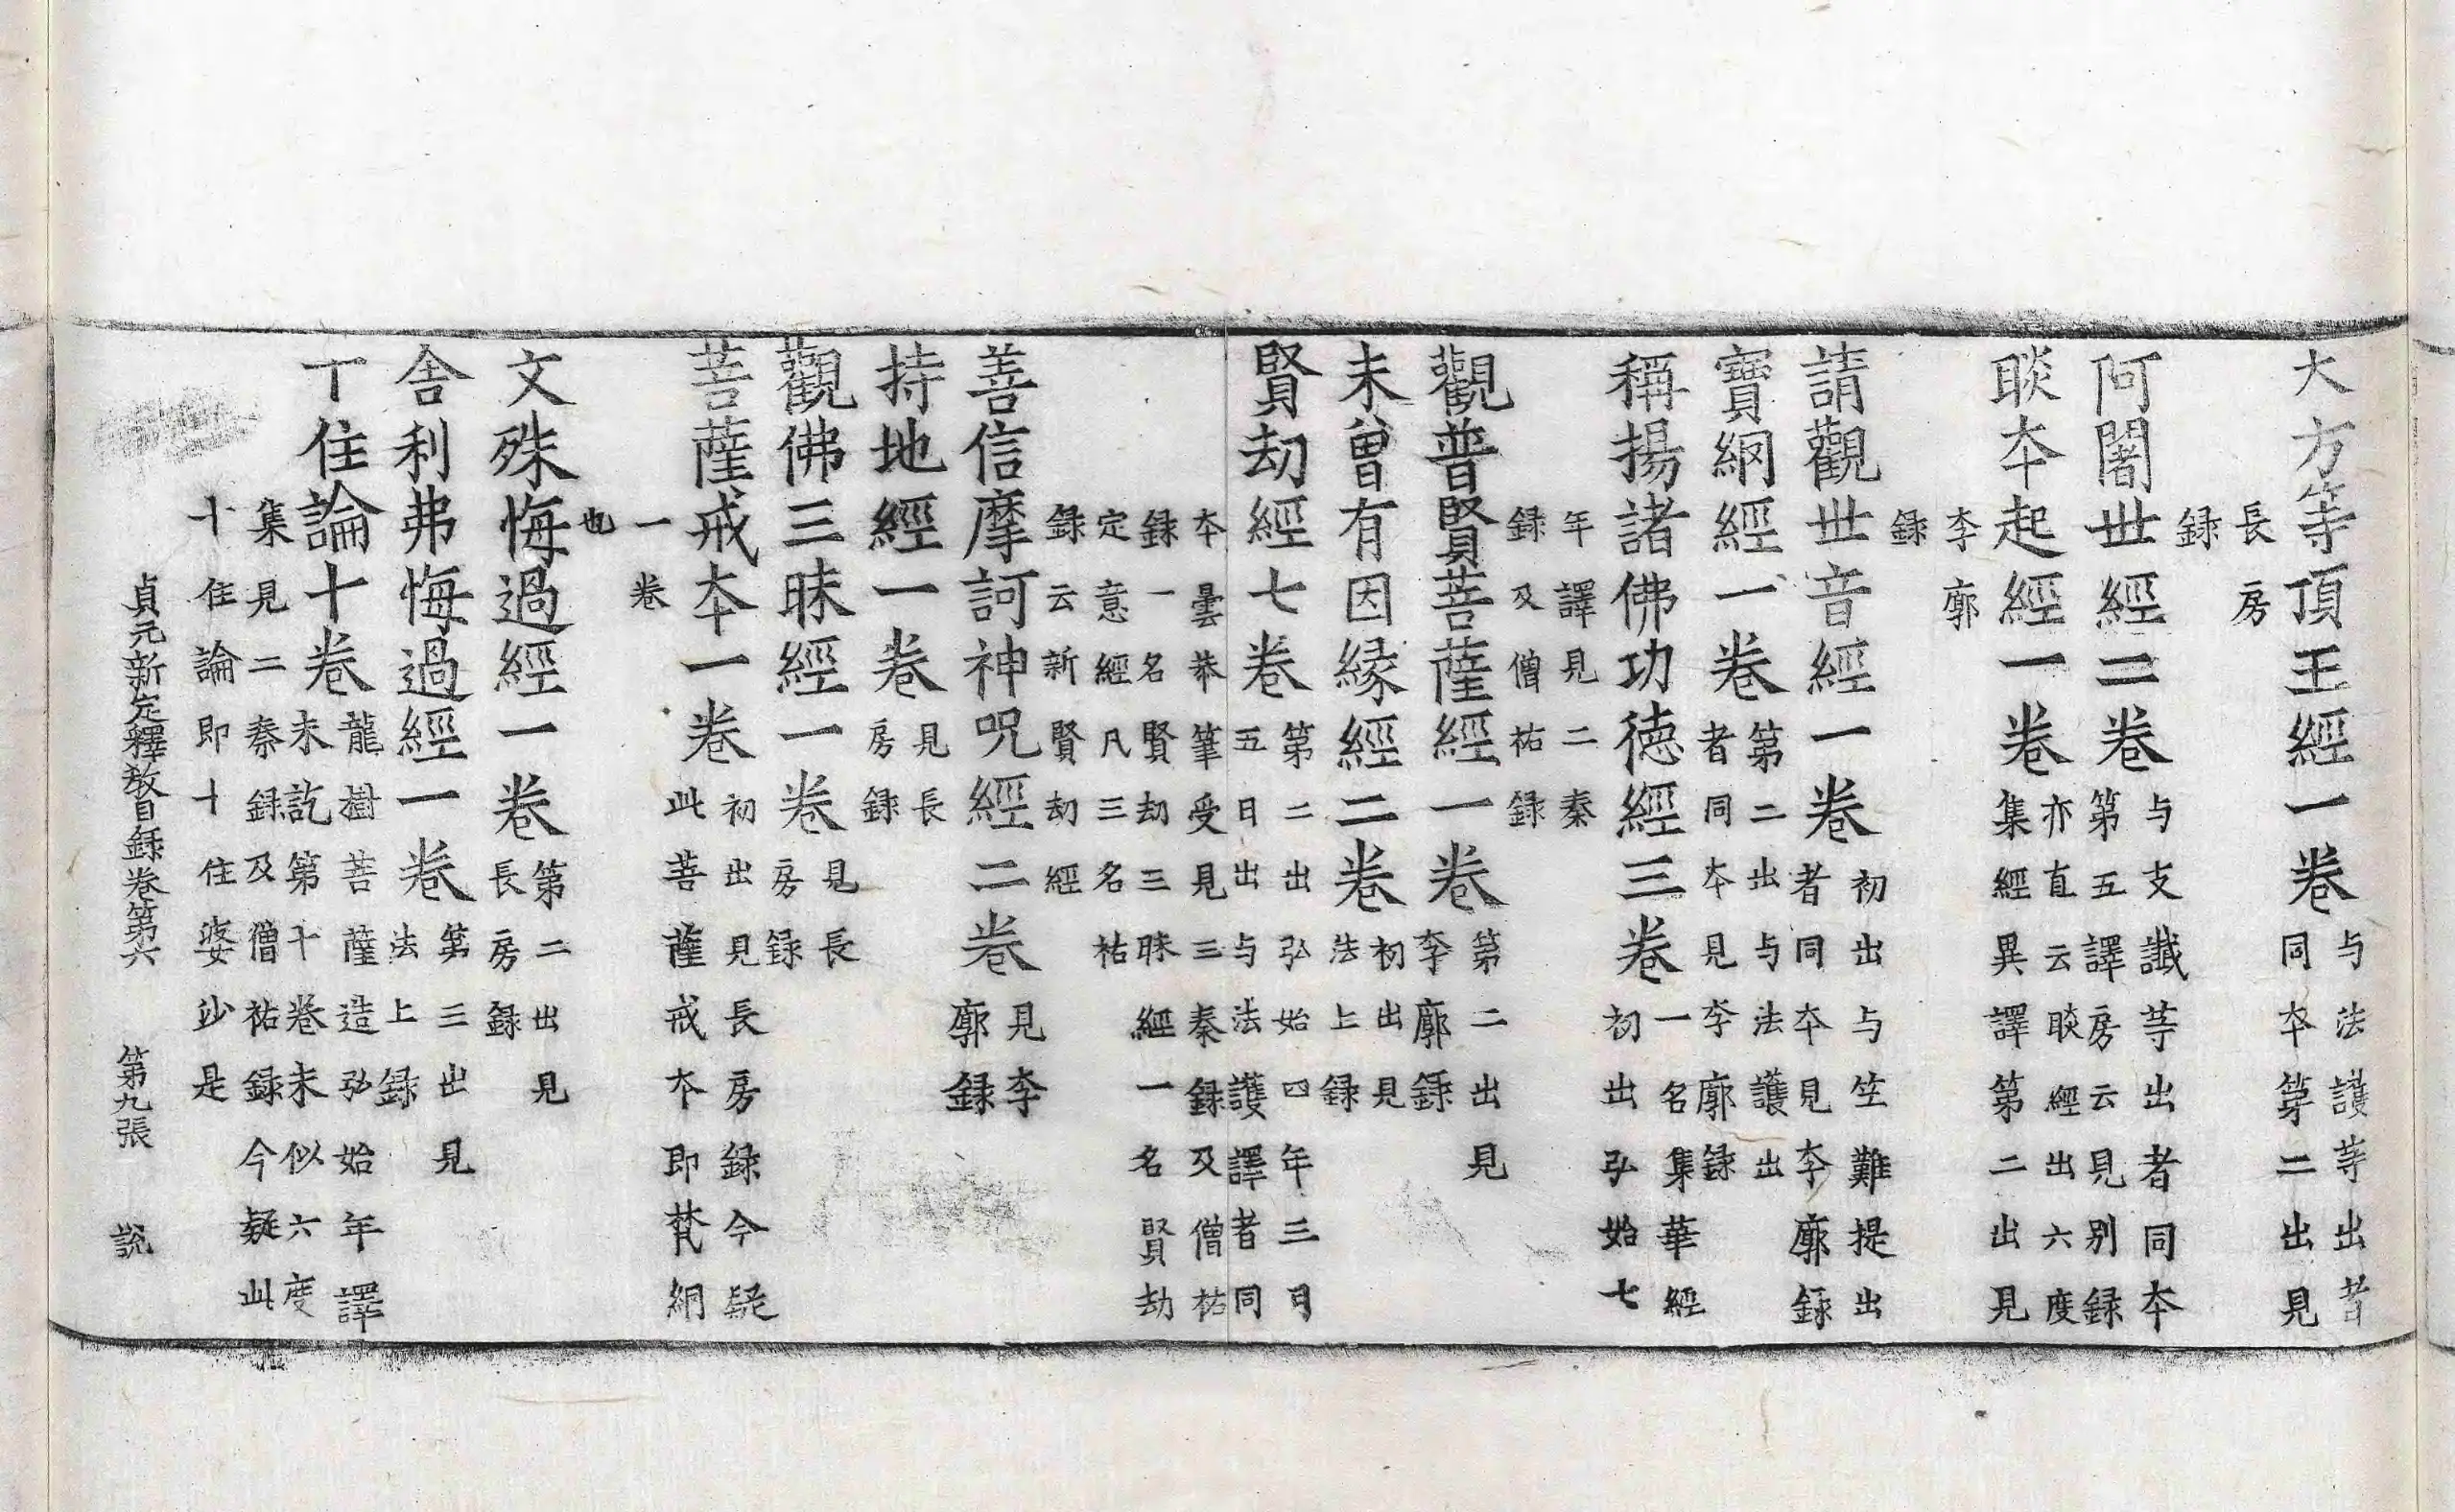 大方等頂王經一卷与法護等出者同本第二出見
長房録
阿闍世經二卷与支讖等出者同本第五譯房云見別録
睒本起經一卷亦直云睒經出六度集經異譯第二出見
李廓録
請觀世音經一卷初出与竺難提出者同本見李廓録
寶網經一卷第二出与法護出者同本見李廓録
稱揚諸佛功德經三卷一名集華經初出弘始七
年譯見二秦録及僧祐録
觀普賢菩薩經一卷第二出見李廓録
未曾有因縁經二卷初出見法上録
賢劫經七卷第二出弘始四年三月五日出与法護譯者同
本曇恭筆受見三秦録及僧祐録一名賢劫三昧經一名賢劫
定意經凡三名祐録云新賢劫經
善信摩訶神呪經二卷見李廓録
持地經一卷見長房録
觀佛三昧經一卷見長房録
菩薩戒本一卷初出見長房録今疑此菩薩戒本即梵網
一卷也
文殊悔過經一卷第二出見長房録
舍利弗悔過經一卷第三出見法上録
十住論十卷龍樹菩薩造弘始年譯未訖第十卷未似六度
集見二秦録及僧祐録今疑此十住論即十住婆沙是
貞元新定釋教目録卷第六 第九張 説